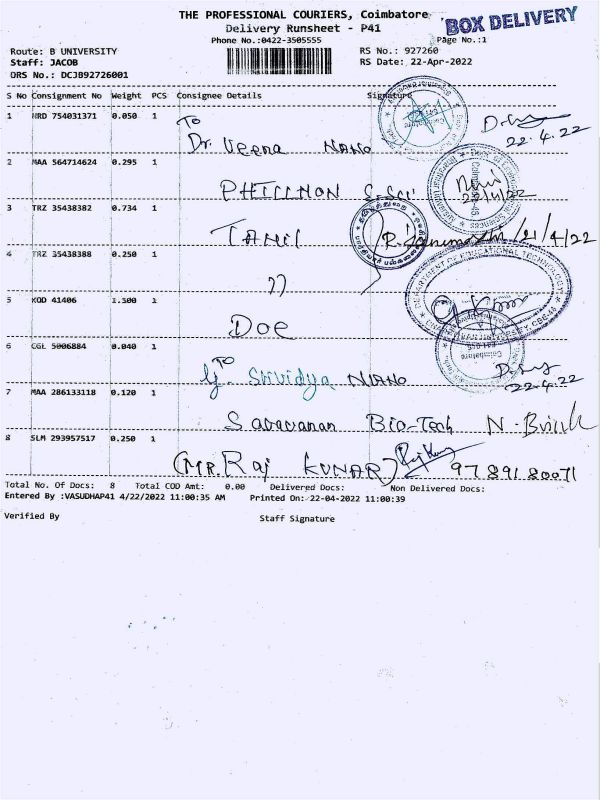 THE PROFESSIONAL COURIERS, Coimbatore
BOX DELIVERY
Delivery Runsheet - P41
Phone No.:0422-3505555
Page No.:1
Route: B UNIVERSITY
RS No.: 927260
Staff: JACOB
RS Date: 22-Apr-2022
DRS No.: DCJB92726001
S No Consignment No Weight PCS Consignee Details Signature
1 NRD 754031371 0.050 1 To
Dr. Veena NANO
22.4.22
2 MAA 564714624 0.295 1
22/4/22
3 TRZ 35438382 0.734 1
TAMIL
21/4/22
4 TRZ 35438388 0.250 1
5 KOD 41406 1.300 1
DOE
DEPARTMENT OF EDUCATIONAL TECHNOLOGY
6 CGL 5006884 0.040 1 To
Y. Srividya NANO
22.4.22
7 MAA 286133118 0.120 1
Saravanan Bio-Tech
8 SLM 293957517 0.250 1
(MR. Raj KUNAR) 9789180071
Total No. Of Docs: 8 Total COD Amt: 0.00 Delivered Docs: Non Delivered Docs:
Entered By :VASUDHAP41 4/22/2022 11:00:35 AM Printed On: 22-04-2022 11:00:39
Verified By Staff Signature